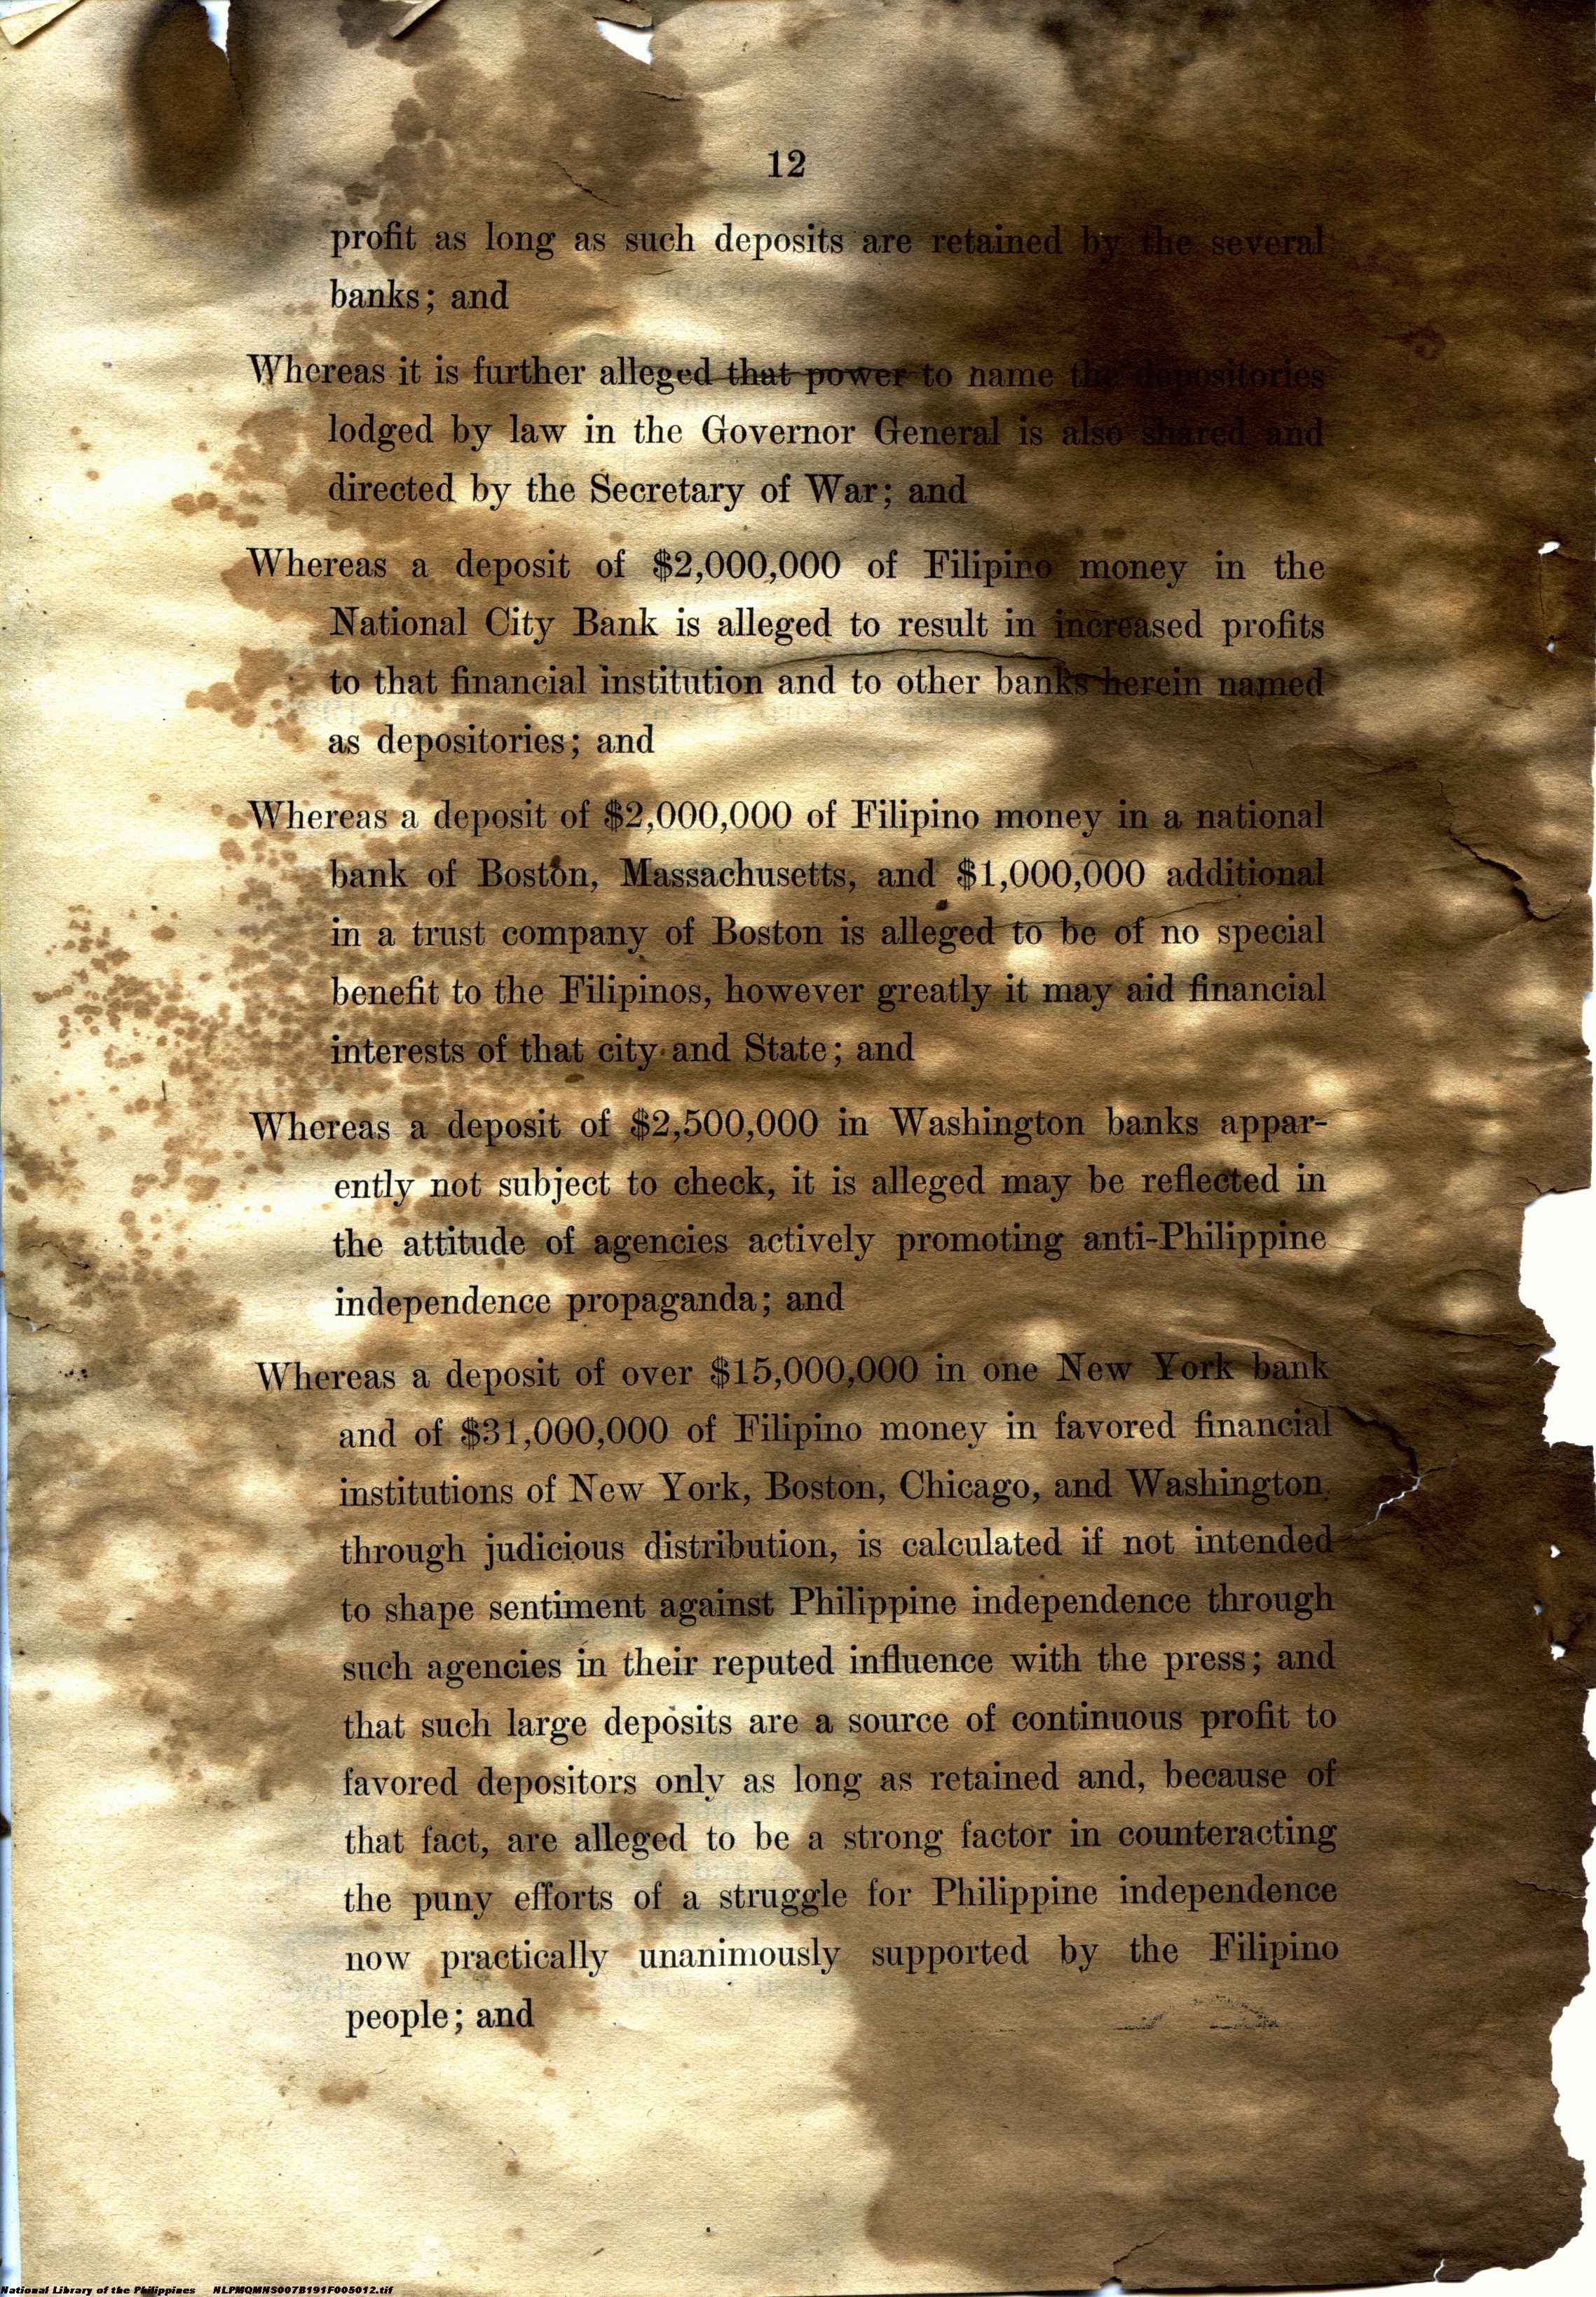 12
profit as long as such deposits are retained by the several
banks; and
Whereas it is further alleged that power to name the depositories
lodged by law in the Governor General is also shared and
directed by the Secretary of War; and
Whereas a deposit of $2,000,000 of Filipino money in the
National City Bank is alleged to result in increased profits
to that financial institution and to other banks herein named
as depositories; and
Whereas a deposit of $2,000,000 of Filipino money in a national
bank of Boston, Massachusetts, and $1,000,000 additional
in a trust company of Boston is alleged to be of no special
benefit to the Filipinos, however greatly it may aid financial
interests of that city and State; and
Whereas a deposit of $2,500,000 in Washington banks appar-
ently not subject to check, it is alleged may be reflected in
the attitude of agencies actively promoting anti-Philippine
independence propaganda; and
Whereas a deposit of over $15,000,000 in one New York bank
and of $31,000,000 of Filipino money in favored financial
institutions of New York, Boston, Chicago, and Washington,
through judicious distribution, is calculated if not intended
to shape sentiment against Philippine independence through
such agencies in their reputed influence with the press; and
that such large deposits are a source of continuous profit to
favored depositors only as long as retained and, because of
that fact, are alleged to be a strong factor in counteracting
the puny efforts of a struggle for Philippine independence
now practically unanimously supported by the Filipino
people; and
National Library of the Philippines NLPMQMNS007B191F005012.tif